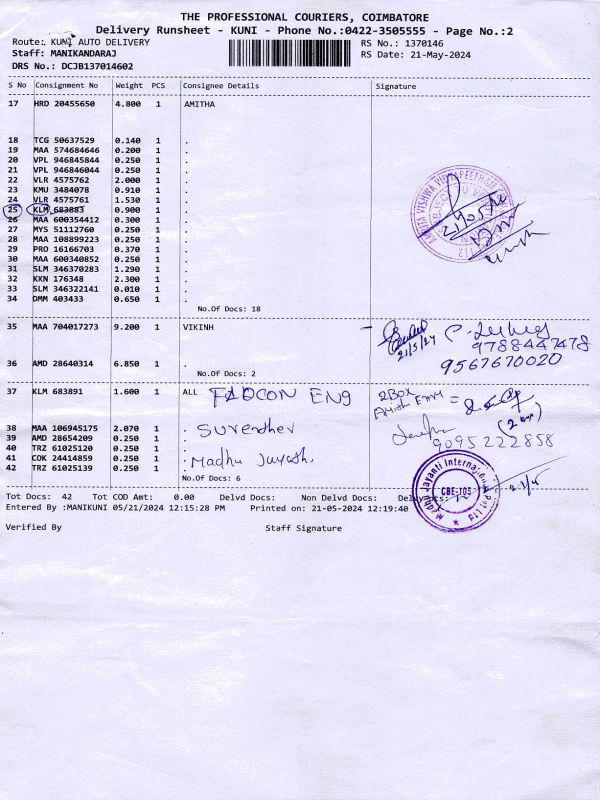 THE PROFESSIONAL COURIERS, COIMBATORE
Delivery Runsheet - KUNI - Phone No.:0422-3505555 - Page No.:2
Route: KUNI AUTO DELIVERY RS No.: 1370146
Staff: MANIKANDARAJ RS Date: 21-May-2024
DRS No.: DCJB137014602
S No Consignment No Weight PCS Consignee Details Signature
17 HRD 20455650 4.800 1 AMITHA
18 TCG 50637529 0.140 1 .
19 MAA 574684646 0.200 1 .
20 VPL 946845844 0.250 1 .
21 VPL 946846044 0.250 1 .
22 VLR 4575762 2.000 1 .
23 KMU 3484078 0.910 1 .
24 VLR 4575761 1.530 1 .
25 KLM 683883 0.900 1 .
26 MAA 600354412 0.300 1 .
27 MYS 51112760 0.250 1 .
28 MAA 108899223 0.250 1 .
29 PRO 16166703 0.370 1 .
30 MAA 600340852 0.250 1 .
31 SLM 346370283 1.290 1 .
32 KKN 176348 2.300 1 .
33 SLM 346322141 0.010 1 .
34 DMM 403433 0.650 1 .
No.Of Docs: 18
35 MAA 704017273 9.200 1 VIKINH
21/5/24
9788447478
9567670020
36 AMD 28640314 6.850 1 .
No.Of Docs: 2
37 KLM 683891 1.600 1 ALL FADCON ENG
2 BOX
38 MAA 106945175 2.070 1 . Surendher
9095222858
39 AMD 28654209 0.250 1 .
40 TRZ 61025120 0.250 1 .
41 COK 24414859 0.250 1 . Madhu Jayash.
42 TRZ 61025139 0.250 1 .
No.Of Docs: 6
Madhu Jayanti International Pvt Ltd
CBE-105
Tot Docs: 42 Tot COD Amt: 0.00 Delvd Docs: Non Delvd Docs:
Entered By :MANIKUNI 05/21/2024 12:15:28 PM Printed on: 21-05-2024 12:19:40
Verified By Staff Signature